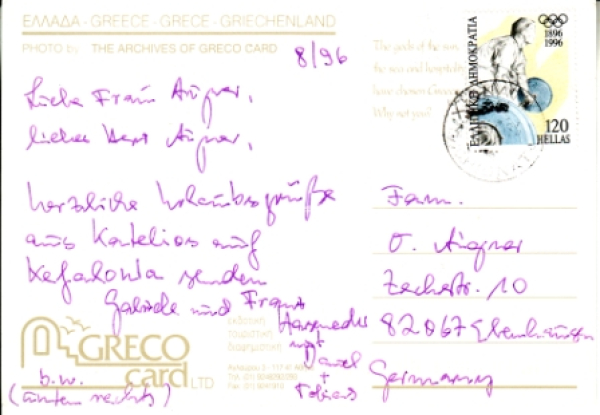 ΕΛΛΑΔΑ - GREECE - GRÈCE - GRIECHENLAND
PHOTO by THE ARCHIVES OF GRECO CARD
8/96
Liebe Frau Aigner,
lieber Herr Aigner,
herzliche Urlaubsgrüße
aus Katelios auf
Kefalonia senden
Gabriele und Franz
mit
+
Tobias
b.w.
(unten rechts)
The gods of the sun,
the sea and hospitality
have chosen Greece
Why not you?
ΕΛΛΗΝΙΚΗ ΔΗΜΟΚΡΑΤΙΑ
1896
1996
120
HELLAS
Fam.
Aigner
Zechstr. 10
82067 Ebenhausen
Germany
GRECO
card LTD
εκδοτική
τουριστική
διαφημιστική